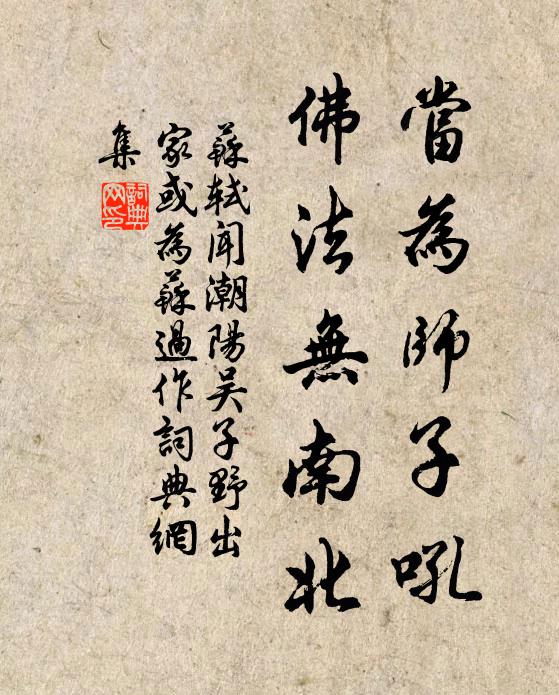 當為師子吼
佛法無南北
蘇軾聞潮陽吴子野出
家或為蘇過作詞典網
集
詞典
网印